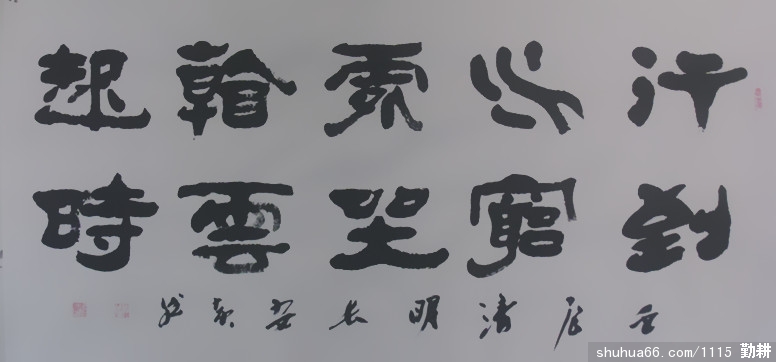 行到
水窮
處坐
看雲
起時
壬辰清明長安
shuhua66.com/1115 勤耕